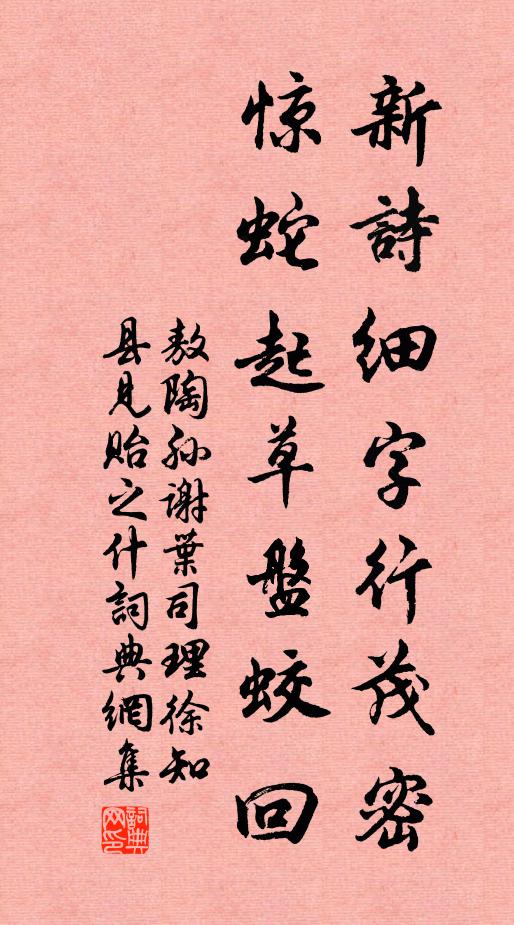 新詩细字行茂密
惊蛇起草盤蛟回
敖陶孙谢葉司理徐知
县見贻之什詞典網集
詞典
网印